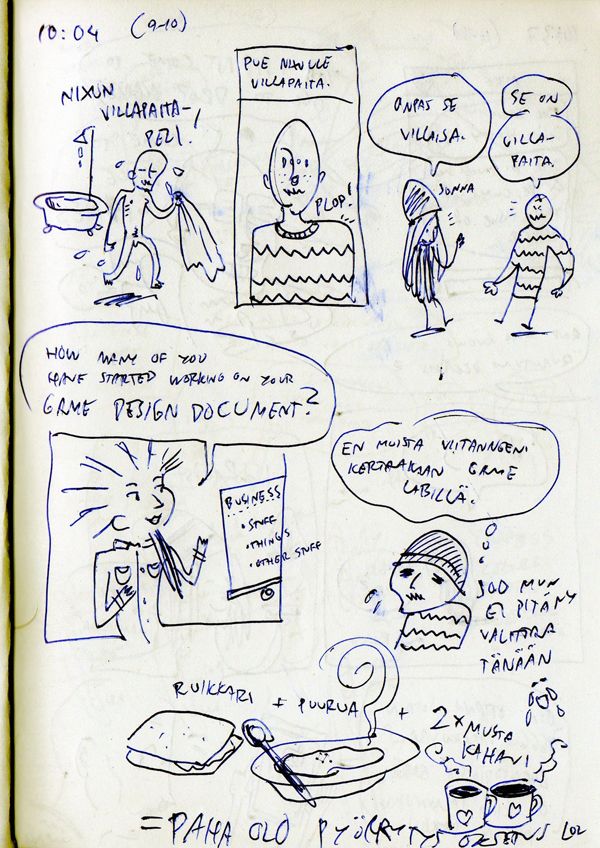 10:04 (9-10)
NIXUN
VILLAPAITA-
PELI!
PUE NIXULLE
VILLAPAITA.
PLOP!
ONPAS SE
VILLAISA.
JONNA
SE ON
VILLA-
PAITA.
HOW MANY OF YOU
HAVE STARTED WORKING ON YOUR
GAME DESIGN DOCUMENT?
BUSINESS
• STUFF
• THINGS
• OTHER STUFF
EN MUISTA
KERTAAKAAN GAME
LABILLÄ.
JOO MUN
EI PITÄNY
VALITTAA
TÄNÄÄN
RUIKKARI + PUUROA +
2 x MUSTA
KAHAVI
= PAHA OLO PYÖRRYTYS OKSETUS LOL